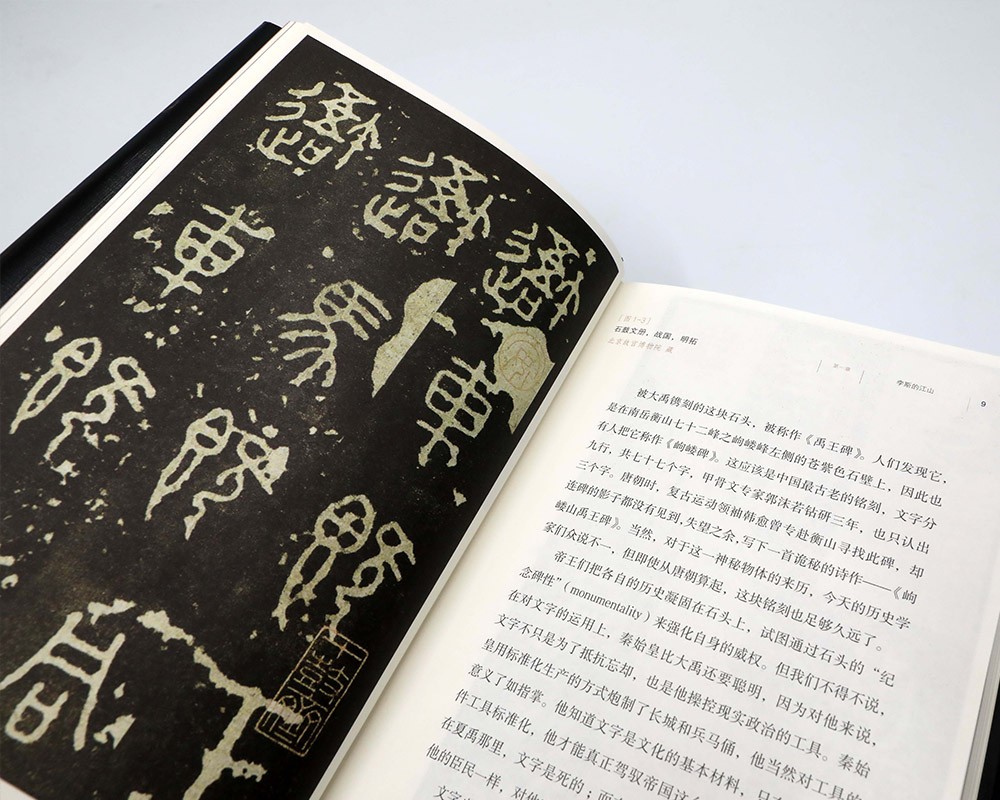 [图1-3]
石鼓文册，战国，明拓
北京故宫博物院 藏
第一章
李斯的江山
9
被大禹镌刻的这块石头，被称作《禹王碑》。人们发现它，
是在南岳衡山七十二峰之岣嵝峰左侧的苍紫色石壁上，因此也
有人把它称作《岣嵝碑》。这应该是中国最古老的铭刻，文字分
九行，共七十七个字，甲骨文专家郭沫若钻研三年，也只认出
三个字。唐朝时，复古运动领袖韩愈曾专赴衡山寻找此碑，却
连碑的影子都没有见到，失望之余，写下一首诡秘的诗作——《岣
嵝山禹王碑》。当然，对于这一神秘物体的来历，今天的历史学
家们众说不一，但即使从唐朝算起，这块铭刻也足够久远了。
帝王们把各自的历史凝固在石头上，试图通过石头的“纪
念碑性”（monumentality）来强化自身的威权。但我们不得不说，
在对文字的运用上，秦始皇比大禹还要聪明，因为对他来说，
文字不只是为了抵抗忘却，也是他操控现实政治的工具。秦始
皇用标准化生产的方式炮制了长城和兵马俑，他当然对工具的
意义了如指掌。他知道文字是文化的基本材料，只
件工具标准化，他才能真正驾驭帝国这
在夏禹那里，文字是死的；而
他的臣民一样，对
文字